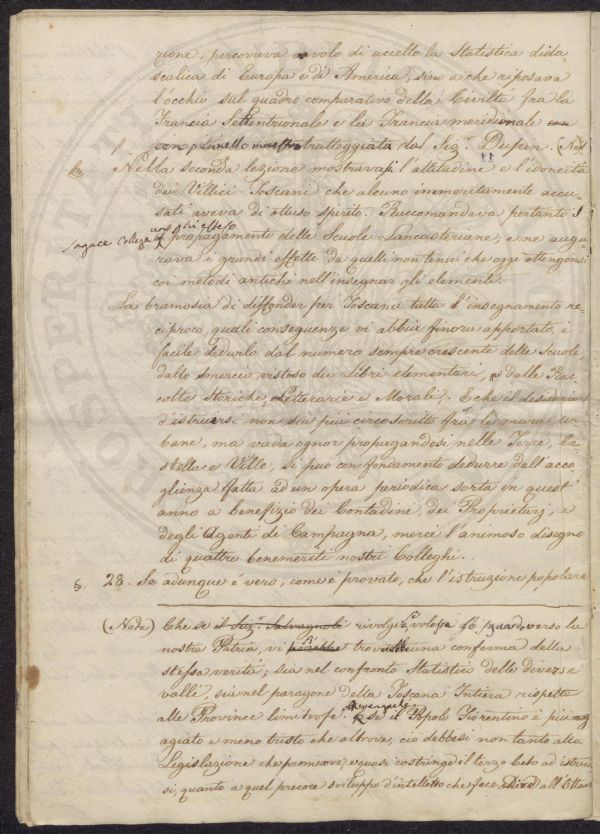 zione, percorreva a volo di uccello la Statistica dida-
scalica di Europa e di America, sino a che riposava
l'occhio sul quadro comparativo della Civiltà fra la
Francia Settentrionale e la Francia meridionale
con pennello maestro tratteggiata dal Sig.r Dupin. (Nota)
Nella seconda lezione mostravasi l'attitudine e l'idoneità
dei Villici Toscani che alcuno immeritamente accu-
sati aveva di ottuso spirito. Raccomandava pertanto il
sagace Collega un più esteso
propagamento delle Scuole Lancasteriane, e ne augu-
rava i grandi effetti da quelli non tenui che oggi ottengonsi
coi metodi antichi nell'insegnar gli elementi.
La bramosia di diffonder per Toscana tutta l'insegnamento re-
ciproco, quali conseguenze vi abbia finora apportato, è
facile dedurlo dal numero sempre crescente delle Scuole,
dallo smercio vistoso dei Libri elementari, e dalle Rac-
colte Storiche, Letterarie e Morali. E che il desiderio
d'istruirsi non sia più circoscritto fra le mura ur-
bane, ma vada ognor propagandosi nelle Terre, Ca-
stella e Ville, si può con fondamento dedurre dall'acco-
glienza fatta ad un opera periodica sorta in quest'
anno a benefizio dei Contadini, dei Proprietarj, e
degli Agenti di Campagna, mercè l'animoso disegno
di quattro benemeriti nostri Colleghi.
§. 28. Se adunque è vero, come è provato, che l'istruzione popolare
(Nota) Che se il Sig.r Salvagnoli rivolger si volesse lo sguardo verso la
nostra Patria, vi si troverebbe una conferma della
stessa verità; sia nel confronto Statistico delle diverse
valli, sia nel paragone della Toscana Intiera rispetto
alle Province limitrofe. Avvegnachè
se il Popolo Fiorentino è più
agiato e meno tristo che altrove, ciò debbesi non tanto alla
Legislazione che promuove e quasi costringe il terzo Ceto ad istruir-
si, quanto a quel precoce sviluppo d'intelletto che fece dire all'Ottavo